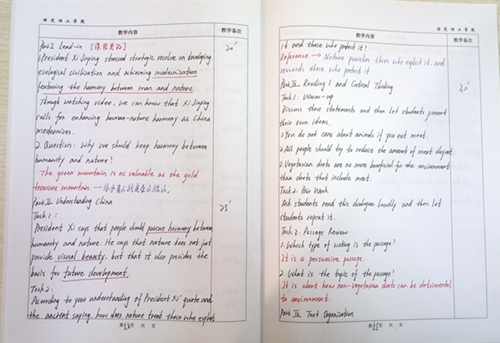 教学内容 教学备注
Part I Lead-in [课程思政] 20'
1. President Xi Jinping stressed strategic resolve on boosting
ecological civilization and achieving modernization
featuring the harmony between man and nature.
Through watching video, we can know that Xi Jinping
calls for enhancing human-nature harmony as China
modernizes.
2. Question: Why we should keep harmony between
humanity and nature?
The green mountain is as valuable as the gold
treasure mountain
Part II Understanding China 25'
Task 1:
President Xi says that people should pursue harmony between
humanity and nature. He says that nature does not just
provide visual beauty, but that it also provides the
basis for future development.
Task 2:
According to your understanding of President Xi' quote and
the ancient saying, how does nature treat those who exploit
教学内容 教学备注
it and those who protect it?
Reference → Nature punishes those who exploit it and
rewards those who protect it
Part III Reading 1 and Critical Thinking 20'
Task 1: Warm-up
Discuss these statements and then let students present
their own ideas.
1. You do not care about animals if you eat meat.
2. All people should try to reduce the amount of meat they eat.
3. Vegetarian diets are no more beneficial for the environment
than diets that include meat.
Task 2: Pair Work
Ask students read this dialogue loudly and then let
students repeat it.
Task 3: Passage Review
1. Which type of writing is the passage?
It is a persuasive passage.
2. What is the topic of the passage?
It is about how non-vegetarian diets can be detrimental
to environment.
Part IV Text Organization